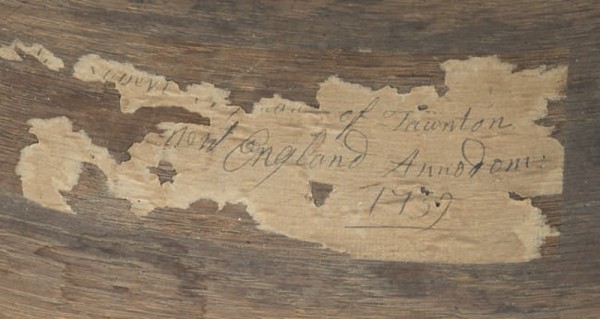 of Tawnton
New England Annodom:
1739